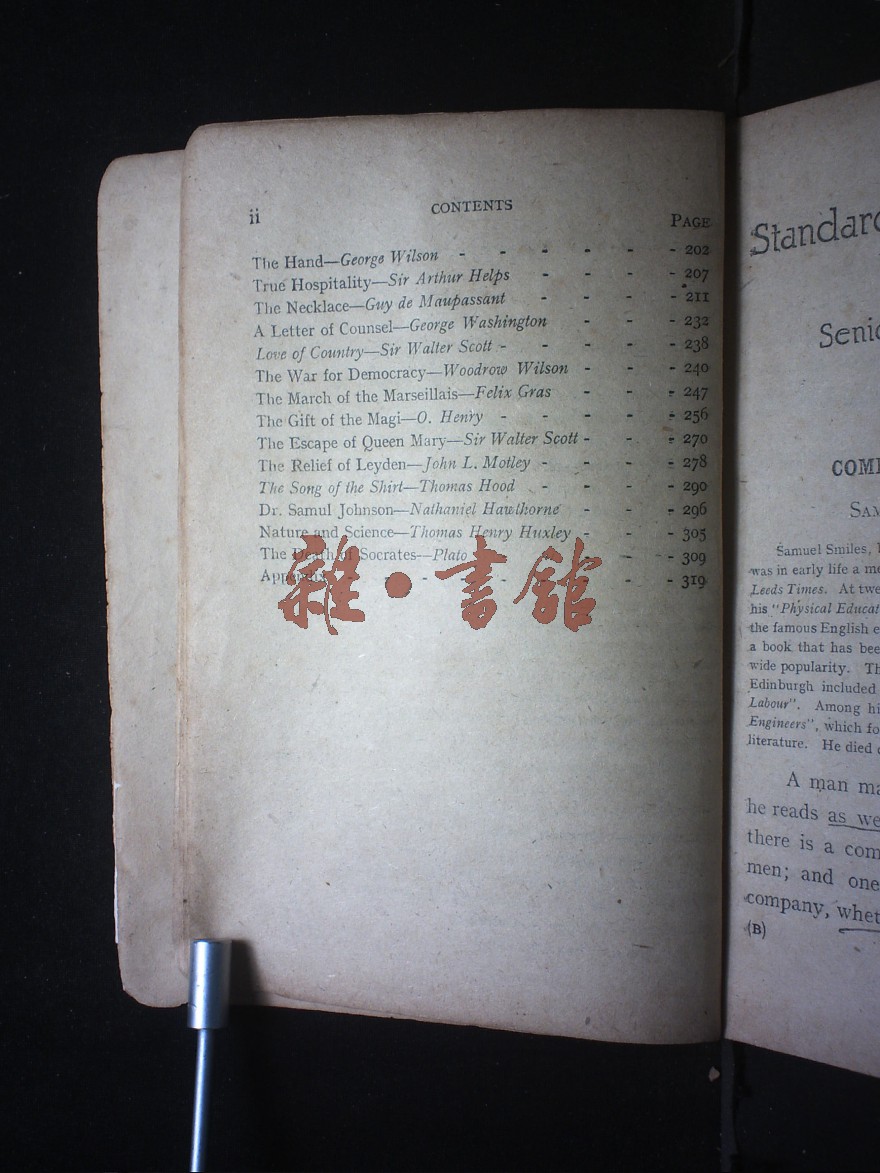 ii
CONTENTS
PAGE
The Hand—George Wilson - - - - - - 202
True Hospitality—Sir Arthur Helps - - - - 207
The Necklace—Guy de Maupassant - - - - 211
A Letter of Counsel—George Washington - - - 232
Love of Country—Sir Walter Scott - - - - - 238
The War for Democracy—Woodrow Wilson - - - 240
The March of the Marseillais—Felix Gras - - - 247
The Gift of the Magi—O. Henry - - - - - 256
The Escape of Queen Mary—Sir Walter Scott - - - 270
The Relief of Leyden—John L. Motley - - - - 278
The Song of the Shirt—Thomas Hood - - - - 290
Dr. Samul Johnson—Nathaniel Hawthorne - - - 296
Nature and Science—Thomas Henry Huxley - - - 305
The Death of Socrates—Plato - - 309
Appendix - - - - - 319
雜·書館
Standard
COM
Samuel Smiles,
was in early life a
Leeds Times. At
his "Physical
the famous English
a book that has
wide popularity.
Edinburgh included
Labour". Among
Engineers", which
literature. He died
A man
he reads as
there is a
men; and one
company,
(B)